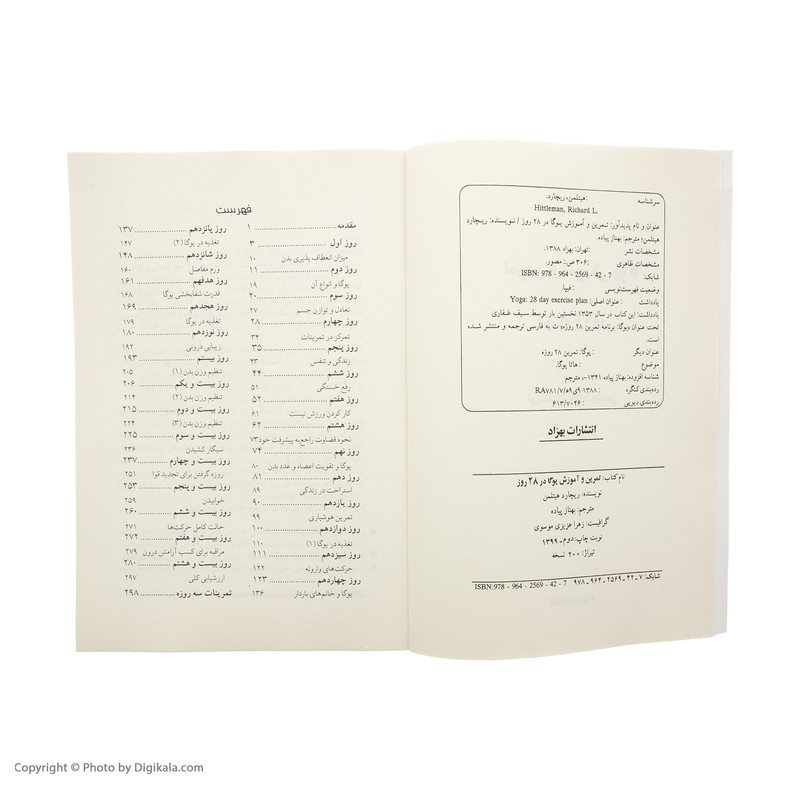 سرشناسه : هیتلمن، ریچارد.
Hittleman, Richard L.
عنوان و نام پدیدآور: تمرین و آموزش یوگا در ۲۸ روز / نویسنده: ریچارد
هیتلمن؛ مترجم: بهناز پیاده.
مشخصات نشر : تهران: بهزاد ۱۳۸۸.
مشخصات ظاهری : ۳۰۶ ص.: مصور.
شابک: ISBN: 978 - 964 - 2569 - 42 - 7
وضعیت فهرست‌نویسی : فیپا.
یادداشت : عنوان اصلی: Yoga: 28 day exercise plan
یادداشت: این کتاب در سال ۱۳۵۳ نخستین بار توسط سیف غفاری
تحت عنوان «یوگا: برنامه تمرین ۲۸ روزه» به فارسی ترجمه و منتشر شده
است.
عنوان دیگر : یوگا: تمرین ۲۸ روزه
موضوع : هاتا یوگا.
شناسه افزوده: بهناز پیاده ۱۳۴۱-، مترجم
رده‌بندی کنگره : ۱۳۸۸ ۹ی۹ه/RA۷۸۱/۷
رده‌بندی دیویی : ۶۱۳/۷۰۴۶
انتشارات بهزاد
نام کتاب: تمرین و آموزش یوگا در ۲۸ روز
نویسنده: ریچارد هیتلمن
مترجم: بهناز پیاده
گرافیست: زهرا عزیزی موسوی
نوبت چاپ: دوم - ۱۳۹۹
تیراژ: ۲۰۰ نسخه
شابک: ۷ ـ ۴۲ ـ ۲۵۶۹ ـ ۹۶۴ ـ ۹۷۸ ISBN:978 - 964 - 2569 - 42 - 7
فهرست
مقدمه ........ ۱
روز اول ........ ۳
میزان انعطاف پذیری بدن ۱۰
روز دوم ........ ۱۱
یوگا و انواع آن ۱۹
روز سوم ........ ۲۰
تعادل و توازن جسم ۲۷
روز چهارم ........ ۲۸
تمرکز در تمرینات ۳۴
روز پنجم ........ ۳۵
زندگی و تنفس ۴۳
روز ششم ........ ۴۴
رفع خستگی ۵۱
روز هفتم ........ ۵۲
کار کردن ورزش نیست ۶۱
روز هشتم ........ ۶۲
نحوه قضاوت راجع‌به پیشرفت خود ۷۳
روز نهم ........ ۷۴
یوگا و تقویت اعضاء و غدد بدن ۸۰
روز دهم ........ ۸۱
استراحت در زندگی ۸۹
روز یازدهم ........ ۹۰
تمرین هوشیاری ۹۹
روز دوازدهم ........ ۱۰۰
تغذیه در یوگا (۱) ۱۱۰
روز سیزدهم ........ ۱۱۱
حرکت‌های وارونه ۱۲۲
روز چهاردهم ........ ۱۲۳
یوگا و خانم‌های باردار ۱۳۶
روز پانزدهم ........ ۱۳۷
تغذیه در یوگا (۲) ۱۴۷
روز شانزدهم ........ ۱۴۸
ورم مفاصل ۱۶۰
روز هدفهم ........ ۱۶۱
قدرت شفابخشی یوگا ۱۶۸
روز هجدهم ........ ۱۶۹
تغذیه در یوگا ۱۷۹
روز نوزدهم ........ ۱۸۰
زیبایی درونی ۱۹۲
روز بیستم ........ ۱۹۳
تنظیم وزن بدن (۱) ۲۰۵
روز بیست و یکم ........ ۲۰۶
تنظیم وزن بدن (۲) ۲۱۴
روز بیست و دوم ........ ۲۱۵
تنظیم وزن بدن (۳) ۲۲۴
روز بیست و سوم ........ ۲۲۵
سیگار کشیدن ۲۳۶
روز بیست و چهارم ........ ۲۳۷
روزه گرفتن برای تجدید قوا ۲۵۱
روز بیست و پنجم ........ ۲۵۳
خوابیدن ۲۵۹
روز بیست و ششم ........ ۲۶۰
حالت کامل حرکت‌ها ۲۷۱
روز بیست و هفتم ........ ۲۷۲
مراقبه برای کسب آرامش درون ۲۷۹
روز بیست و هشتم ........ ۲۸۰
ارزشیابی کلی ۲۹۷
تمرینات سه روزه ........ ۲۹۸
Copyright © Photo by Digikala.com